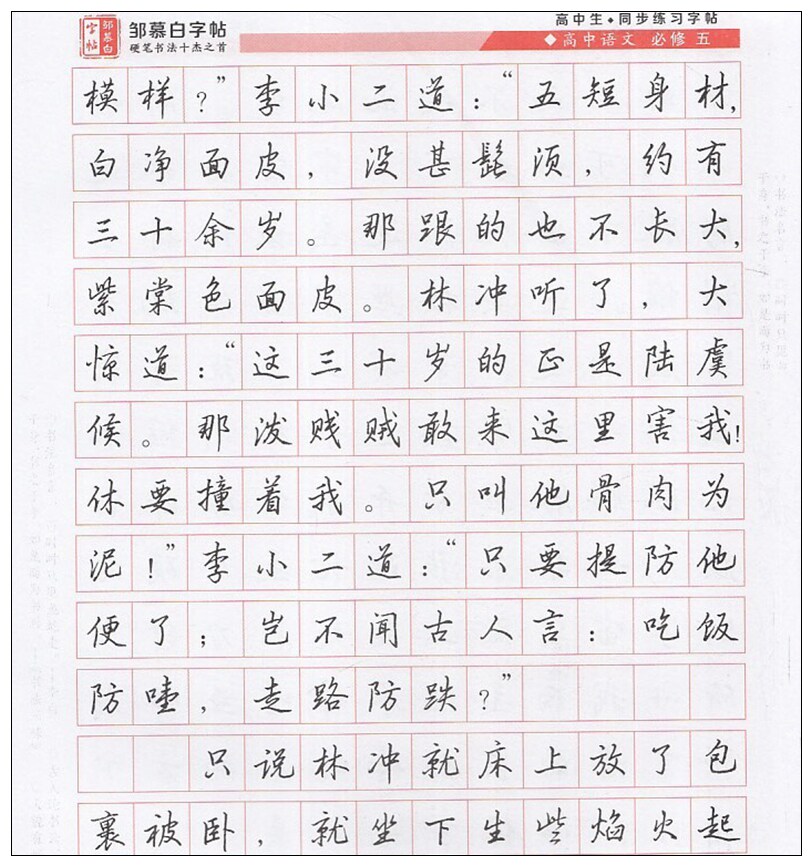 邹慕白字帖
邹慕白字帖
硬笔书法十杰之首
高中生◆同步练习字帖
◆高中语文 必修 五
模样?”李小二道:“五短身材,
白净面皮,没甚髭须,约有
三十余岁。那跟的也不长大,
紫棠色面皮。林冲听了,大
惊道:“这三十岁的正是陆虞
候。那泼贱贼敢来这里害我!
休要撞着我。只叫他骨肉为
泥!”李小二道:“只要提防他
便了;岂不闻古人言:吃饭
防噎,走路防跌?”
只说林冲就床上放了包
裹被卧,就坐下生些焰火起